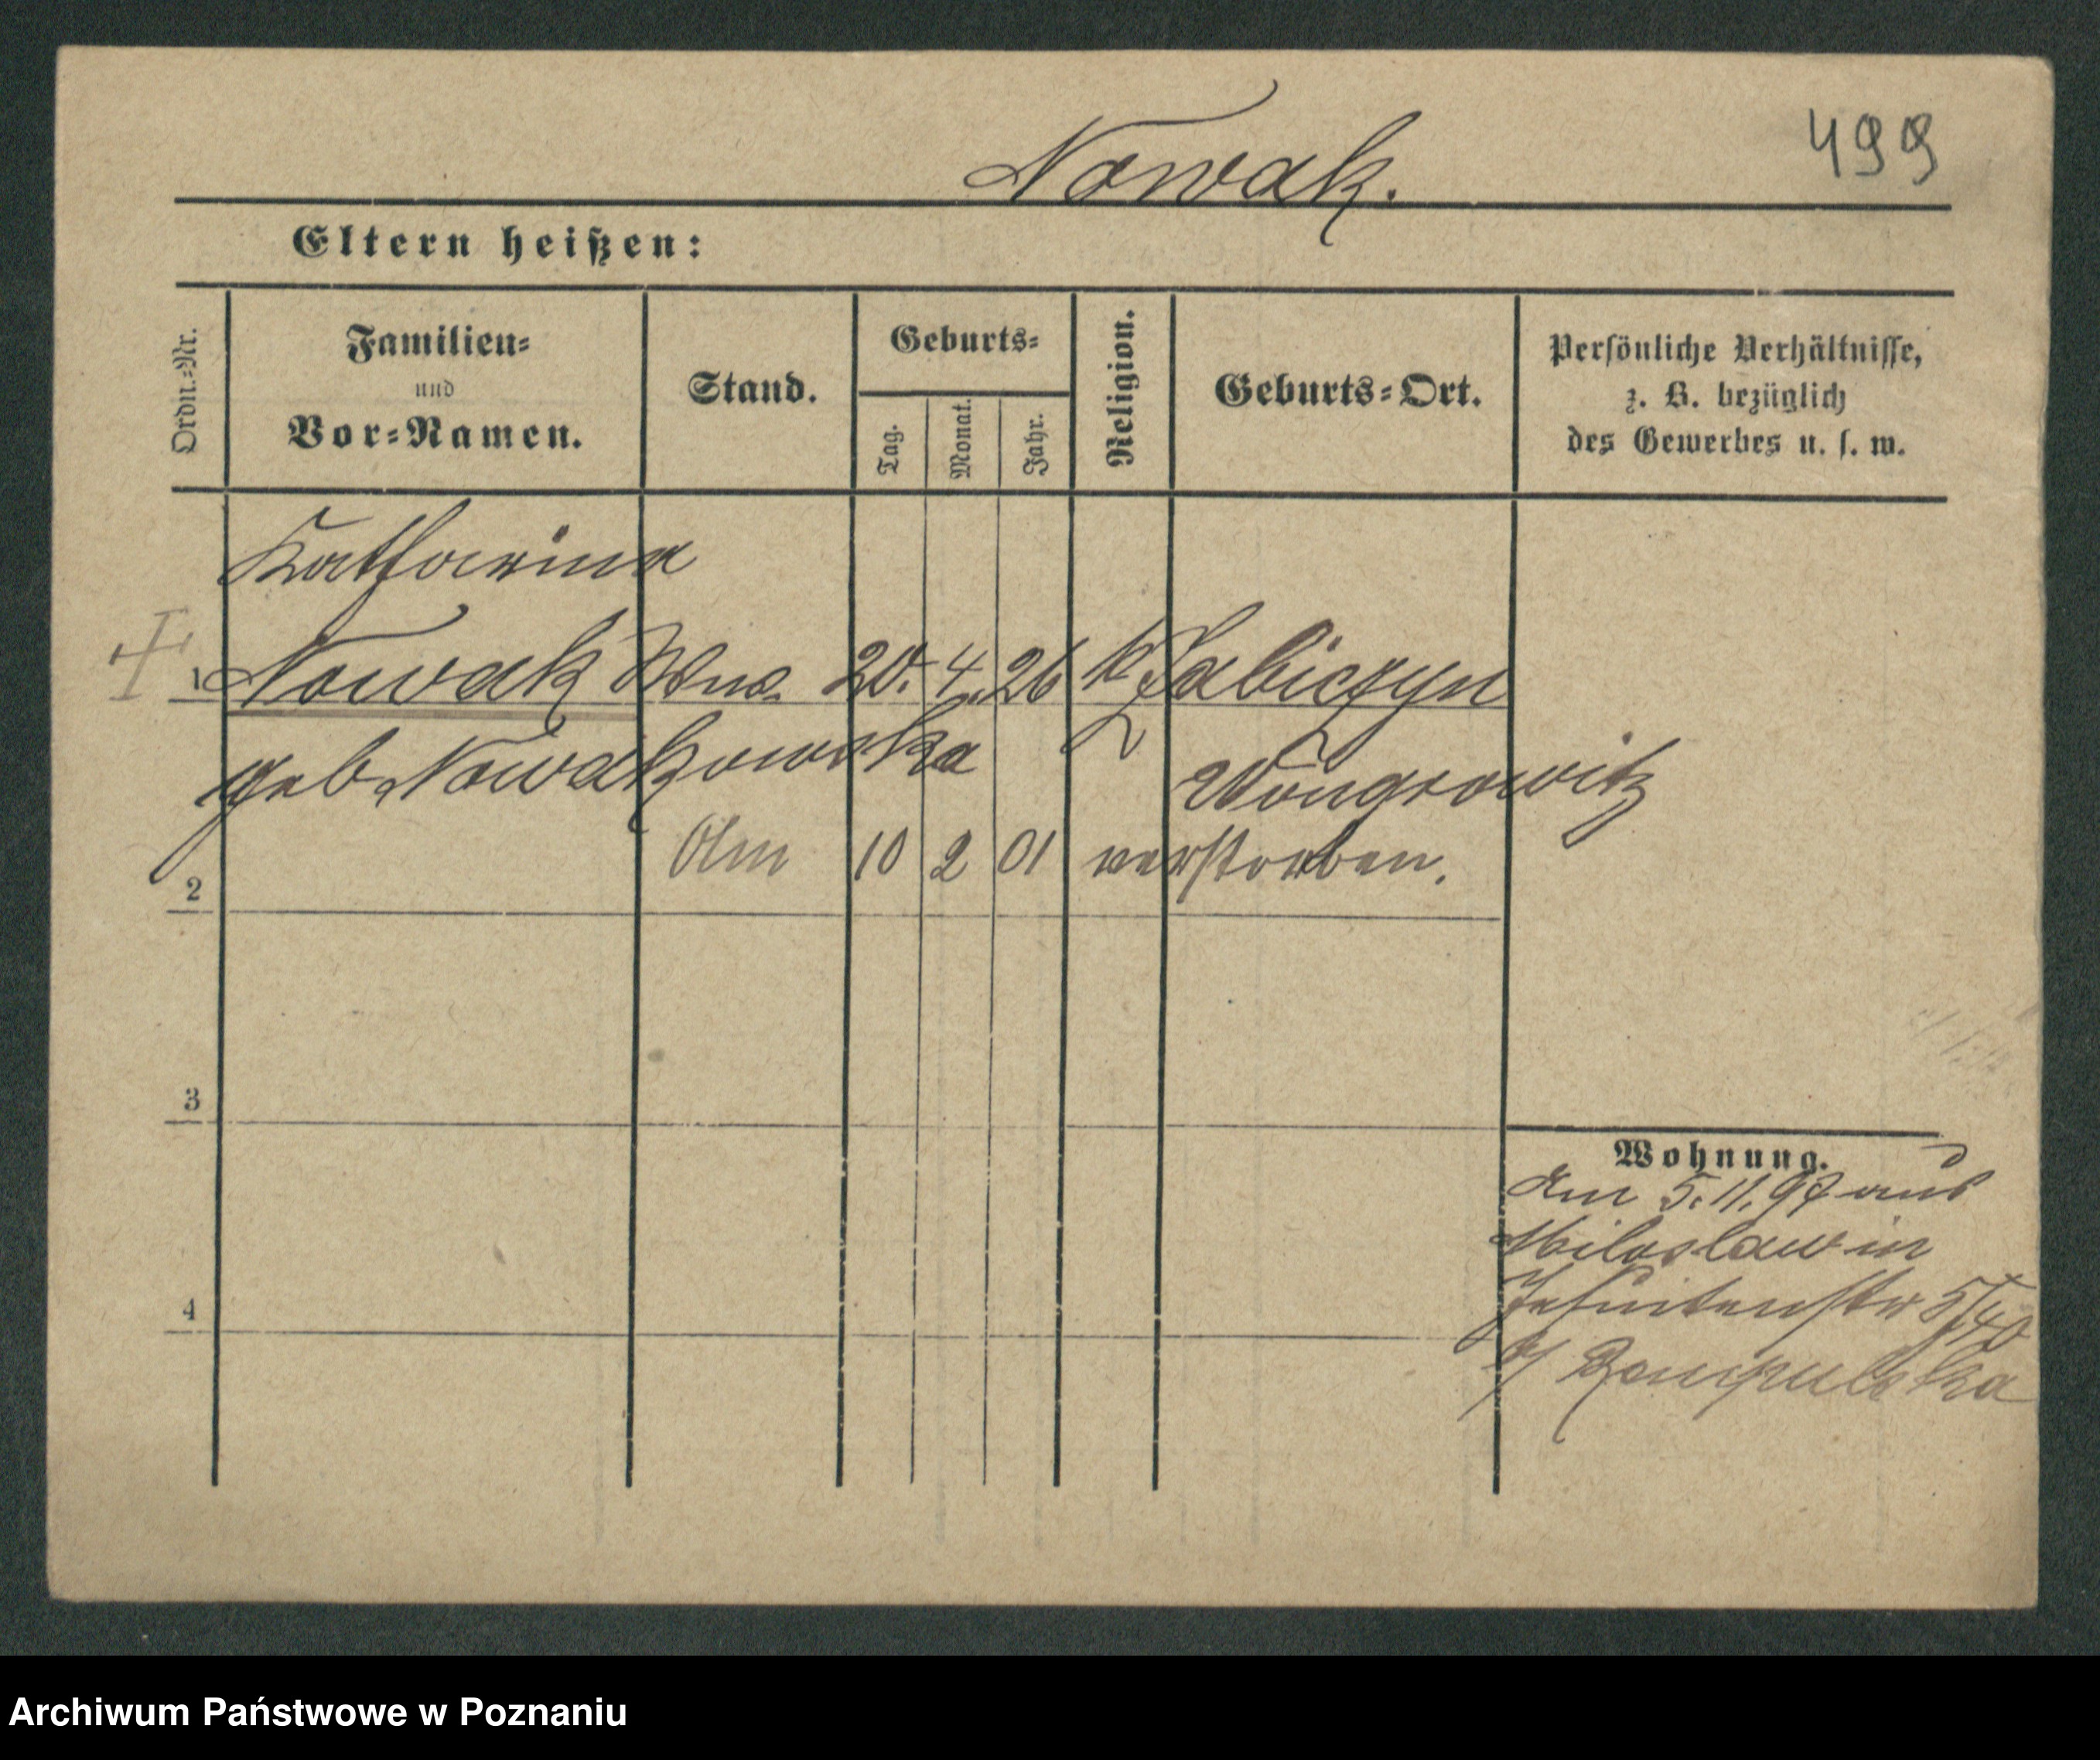 499
Nowak.
Eltern heißen:
Ordn.-Nr.
Familien-
und
Vor-Namen.
Stand.
Geburts-
Tag.
Monat.
Jahr.
Religion.
Geburts-Ort.
Persönliche Verhältnisse,
z. B. bezüglich
des Gewerbes u. s. w.
Katharina
1 Nowak Wwe. 20. 4. 26 k Zabiczyn
geb Nowakowska
Wongrowitz
Am 10 2 01 verstorben.
2
3
4
Wohnung.
Am 5.11.97 aus
Miloslaw in
Jesuitenstr 5/40
b/
Archiwum Państwowe w Poznaniu